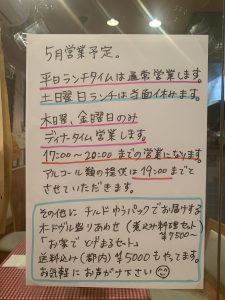 5月営業予定。
平日ランチタイムは通常営業します。
土曜日ランチは当面休みます。
木曜、金曜日のみ
ディナータイム営業します。
17:00〜20:00までの営業になります。
アルコール類の提供は19:00までと
させていただきます。
その他に チルドゆうパックでお届けする
オードブル盛りあわせ(煮込み料理セット)
¥7500〜
「お家で やまとセット」
送料込み(都内)¥5000もやってます。
お気軽にお声がけ下さい